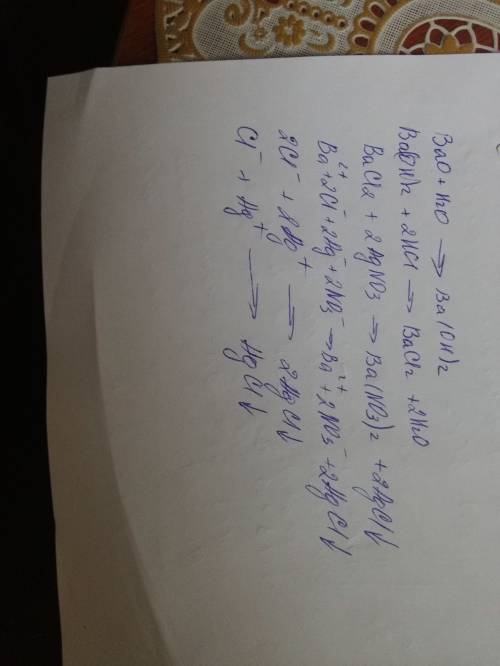 BaO + H2O → Ba(OH)2
Ba(OH)2 + 2HCl → BaCl2 + 2H2O
BaCl2 + 2AgNO3 → Ba(NO3)2 + 2AgCl↓
Ba²⁺ + 2Cl⁻ + 2Ag⁻ + 2NO3⁻ → Ba²⁺ + 2NO3⁻ + 2AgCl↓
2Cl⁻ + 2Ag⁺ → 2AgCl↓
Cl⁻ + Ag⁺ → AgCl↓